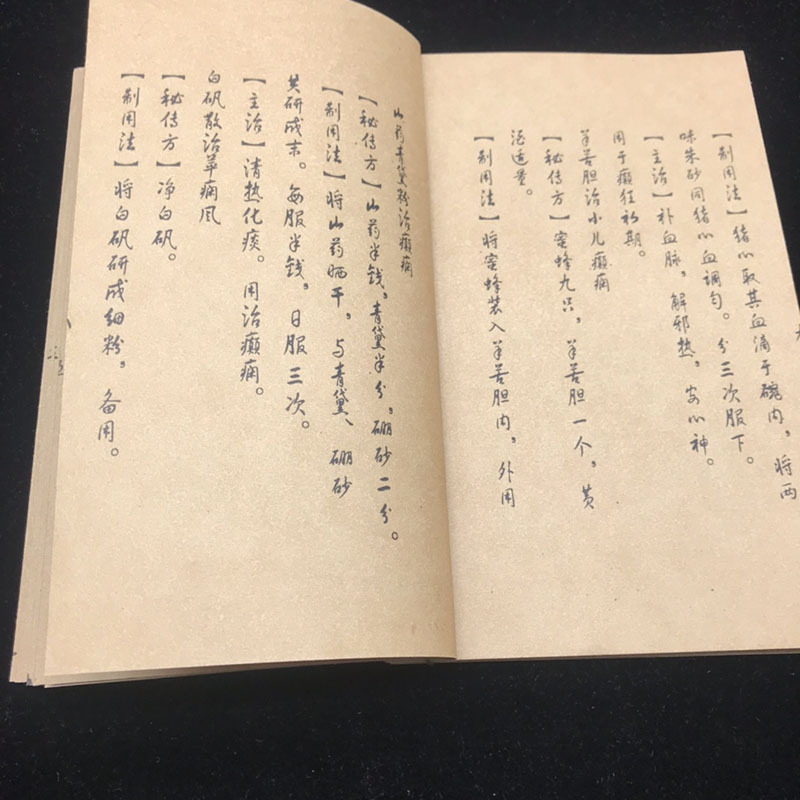 【制用法】猪心取其血滴于碗内，将两
味朱砂同猪心血调匀。分三次服下。
【主治】补血脉，解邪热，安心神。
用于癫狂初期。
羊苦胆治小儿癫痫
【秘传方】蜜蜂九只，羊苦胆一个，黄
泥适量。
【制用法】将蜜蜂装入羊苦胆内，外用
山药青黛粉治癫痫
【秘传方】山药半钱，青黛半分，硼砂二分。
【制用法】将山药晒干，与青黛、硼砂
共研成末。每服半钱，日服三次。
【主治】清热化痰。用治癫痫。
白矾散治羊痫风
【秘传方】净白矾。
【制用法】将白矾研成细粉，备用。